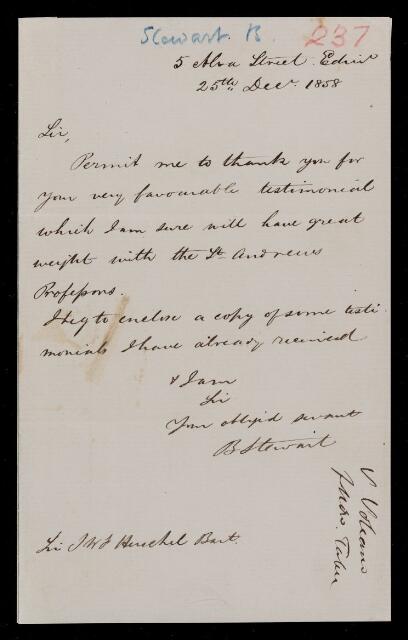 Stewart. B.
237
5 Alva Street. Edinr
25th Decr 1858
Sir,
Permit me to thank you for
your very favourable testimonial
which I am sure will have great
weight with the St Andrews
Professors.
I beg to enclose a copy of some testi-
monials I have already received
& I am
Sir
Your obliged servant
B Stewart
Sir J W F Herschel Bart.
V Volcans